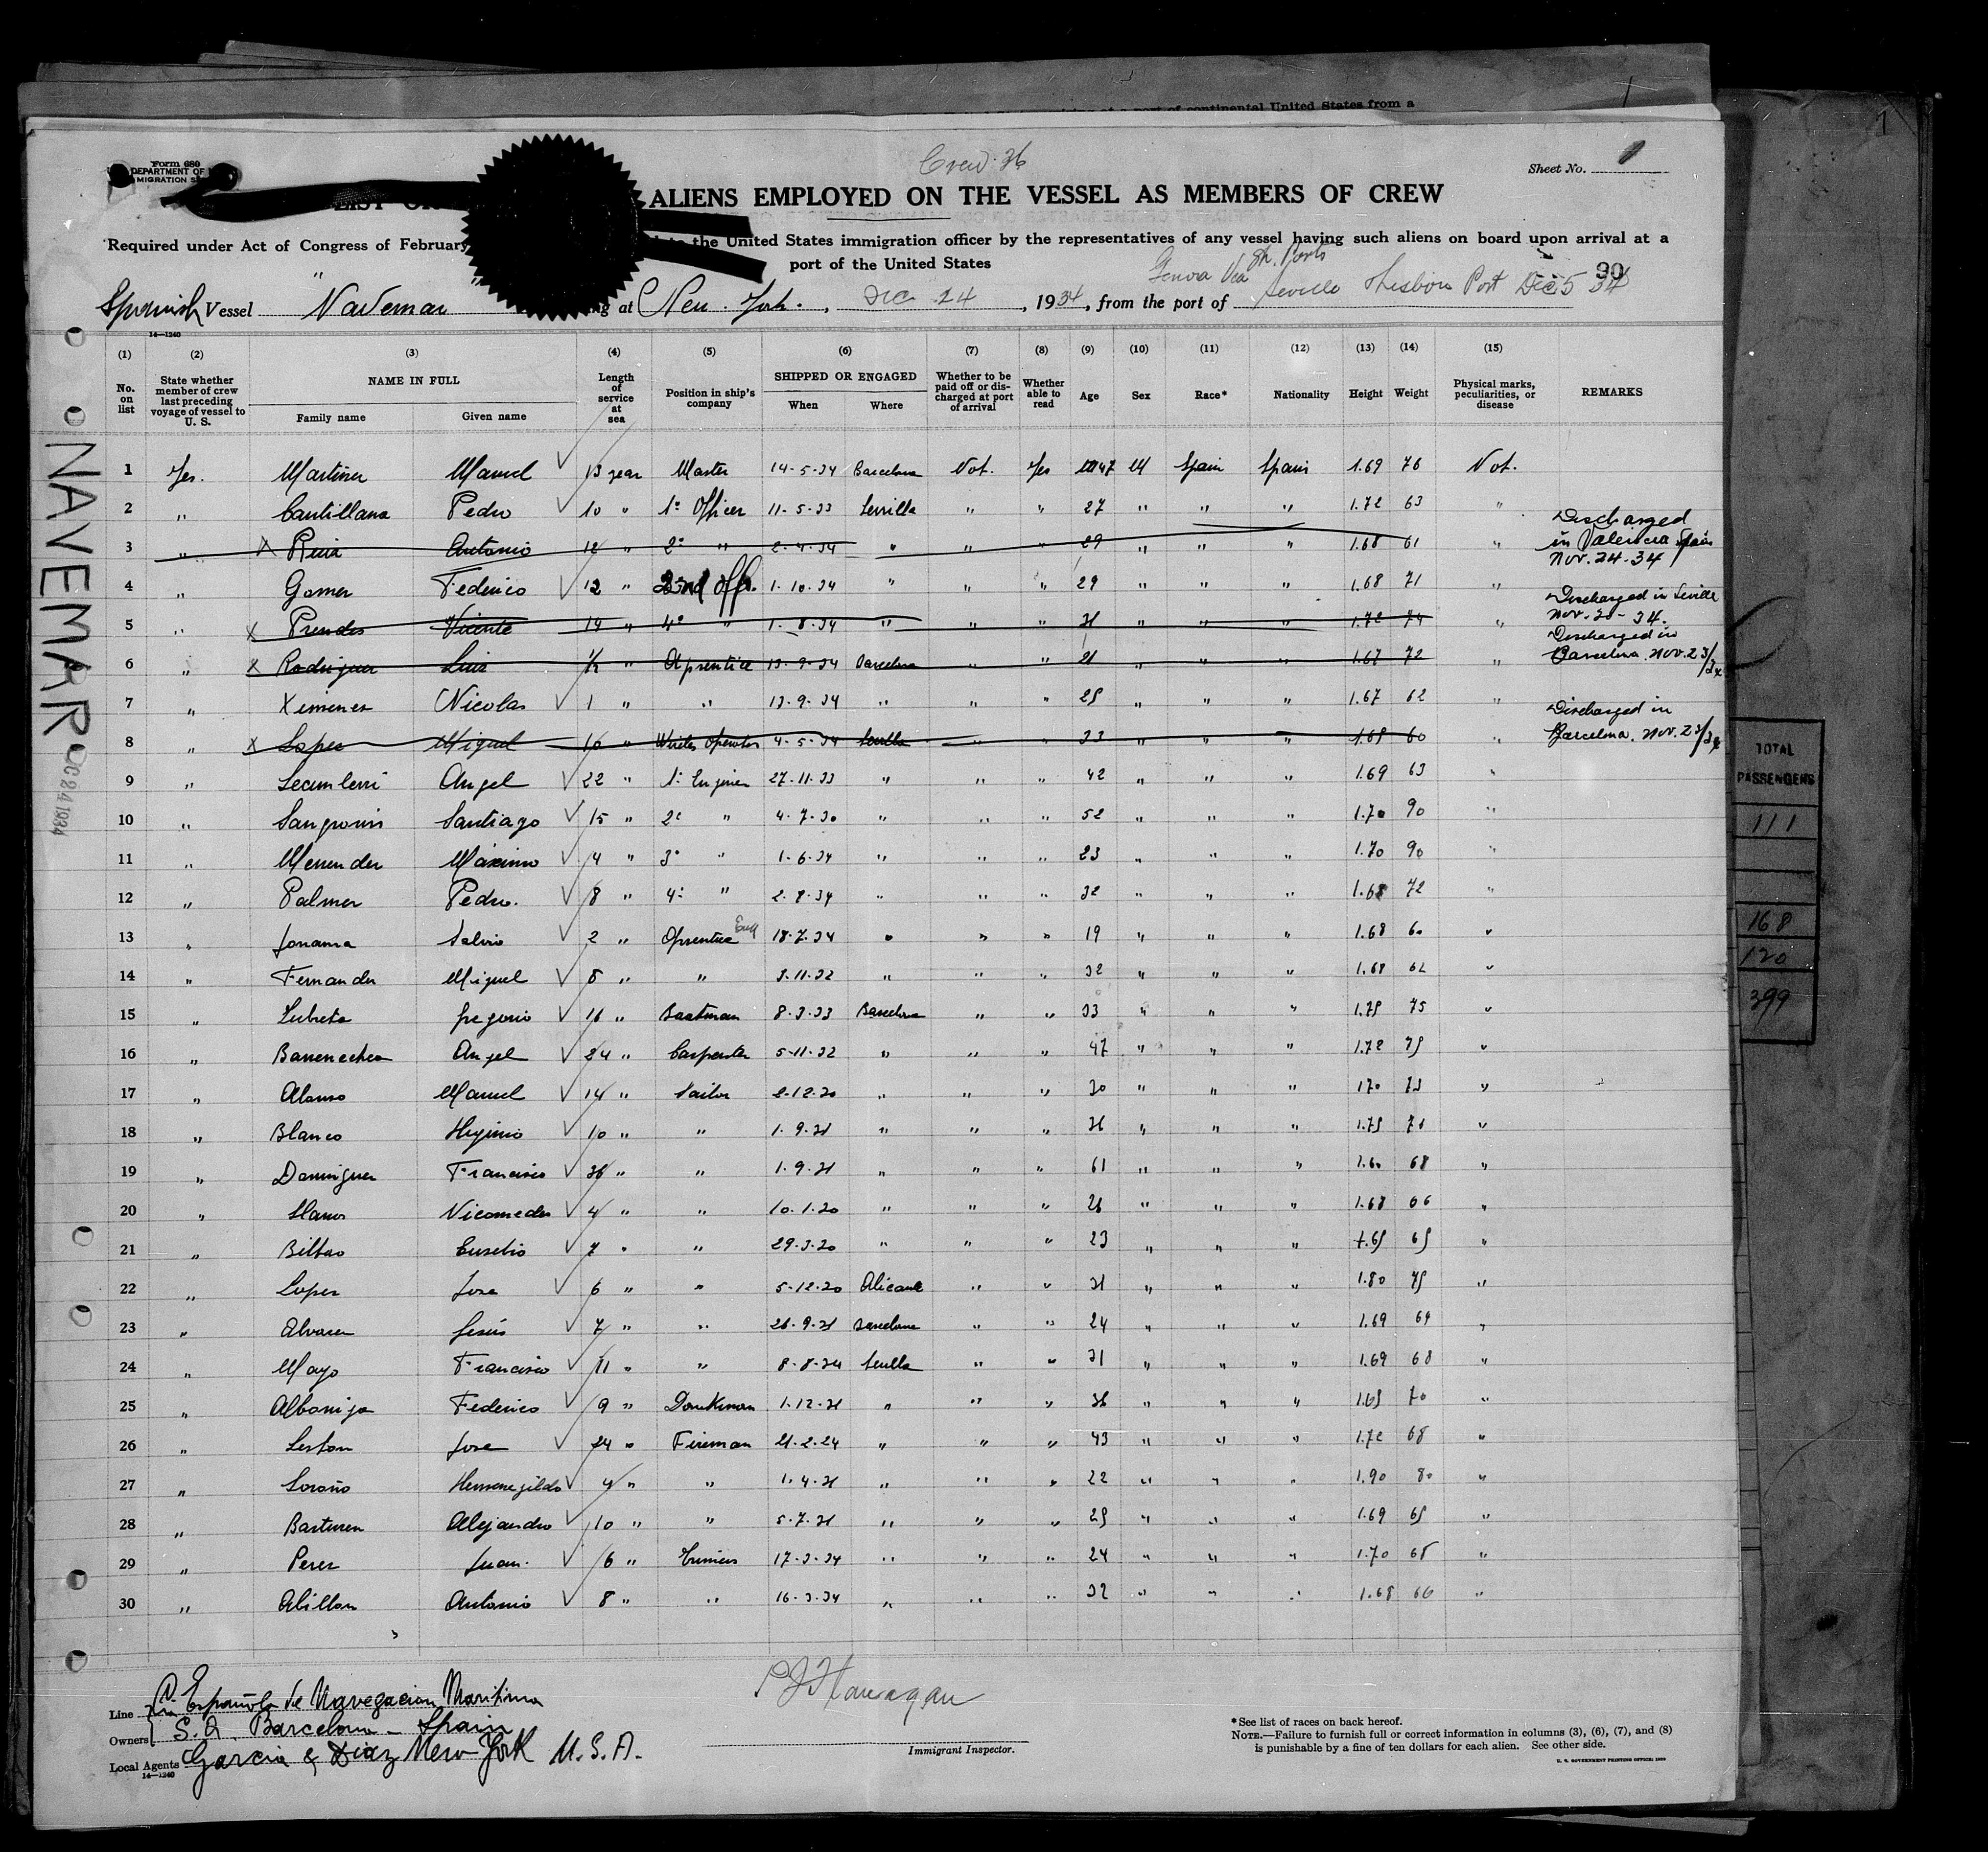 continental United States from a
1
Form 680
DEPARTMENT OF
MIGRATION
Crew. 26
Sheet No. 1
LIST OR ALIENS EMPLOYED ON THE VESSEL AS MEMBERS OF CREW
Required under Act of Congress of February to the United States immigration officer by the representatives of any vessel having such aliens on board upon arrival at a
port of the United States
Genoa Via Sh. Ports
Spanish Vessel "Navemar" ng at New York., DEC 24, 1934, from the port of Seville Lisbon Port Dec 5 34
30
14—1240
(1) (2) (3) (4) (5) (6) (7) (8) (9) (10) (11) (12) (13) (14) (15)
No. on list
State whether member of crew last preceding voyage of vessel to U. S.
NAME IN FULL
Family name
Given name
Length of service at sea
Position in ship's company
SHIPPED OR ENGAGED
When
Where
Whether to be paid off or discharged at port of arrival
Whether able to read
Age
Sex
Race*
Nationality
Height
Weight
Physical marks, peculiarities, or disease
REMARKS
1 Yes. Martinez Manuel √ 13 year Master 14-5-34 Barcelona Not. Yes 47 M Spain Spain 1.69 76 Not.
2 " Cantillana Pedro √ 10 " 1º Officer 11-5-33 Sevilla " " 27 " " " 1.72 63 "
3 " X Antonio 12 " 2º " 2-4-34 " " " 29 " " " 1.68 61 " Discharged in Valencia Spain Nov. 24-34
4 " Gomez Federico √ 12 " 2nd Off. 1-10-34 " " " 29 " " " 1.68 71
5 " X Prendes Vicente 14 " 4º " 1-8-34 " " " 31 " " " 1.72 74 " Discharged in Seville Nov-20-34.
6 " X Rodriguez Luis 1/2 " Aprentice 13-9-34 Barcelona " " 21 " " " 1.67 72 " Discharged in Barcelona. Nov. 23/34
7 " Ximenez Nicolas √ 1 " " 13-9-34 " " " 25 " " " 1.67 62 "
8 " X Lopez Miguel 10 " Wireles Operator 4-5-34 Sevilla " " 33 " " " 1.65 60 " Discharged in Barcelona. Nov. 23/34
9 " Angel √ 22 " 1º Enginier 27-11-33 " " " 42 " " " 1.69 63 "
10 " Sangronis Santiago √ 15 " 2º " 4-7-30 " " " 52 " " " 1.70 90 "
11 " Menendez Máximo √ 4 " 3º " 1-6-34 " " " 23 " " " 1.70 90 "
12 " Palmer Pedro. √ 8 " 4º " 2-8-34 " " " 32 " " " 1.68 72 "
13 " Jonama Salvio √ 2 " Aprentice Eng 18-7-34 " " " 19 " " " 1.68 60 "
14 " Fernandez Miguel √ 8 " " 3-11-32 " " " 32 " " " 1.68 62 "
15 " Zubieta Gregorio √ 16 " Boatman 8-3-33 Barcelona " " 33 " " " 1.75 75 "
16 " Barrenechea Angel √ 24 " Carpenter 5-11-32 " " " 47 " " " 1.72 75 "
17 " Alonso Manuel √ 14 " Sailor 2-12-30 " " " 30 " " " 170 73 "
18 " Blanco Higinio √ 10 " " 1-9-31 " " " 36 " " " 1.75 "
19 " Dominguez Francisco √ 36 " " 1-9-31 " " " 61 " " " 1.60 68 "
20 " Llanos Nicomedes √ 4 " " 10-1-30 " " " 26 " " " 1.68 66 "
21 " Bilbao Eusebio √ 7 " " 29-3-30 " " " 23 " " " 1.65 65 "
22 " Lopez Jose √ 6 " " 5-12-30 Alicante " " 31 " " " 1.80 75 "
23 " Alvarez Jesús √ 7 " " 26-9-31 Barcelona " " 24 " " " 1.69 64 "
24 " Mayo Francisco √ 11 " " 8-8-34 Sevilla " " 31 " " " 1.69 68 "
25 " Alboniga Federico √ 9 " Donkiman 1-12-31 " " " 36 " " " 1.65 70 "
26 " Leston Jose √ 24 " Fireman 21-2-24 " " " 43 " " " 1.72 68 "
27 " Loroño Hermenegildo √ 4 " " 1-4-31 " " " 22 " " " 1.90 80 "
28 " Basturen Alejandro √ 10 " " 5-7-31 " " " 25 " " " 1.69 65 "
29 " Perez Juan. √ 6 " Trimers 17-3-34 " " " 24 " " " 1.70 65 "
30 " Abillon Antonio √ 8 " " 16-3-34 " " " 32 " " " 1.68 66 "
NAVEMAR
DEC 24 1934
TOTAL
PASSENGERS
111
168
120
399
Line Cia Española de Navegacion Maritima
Owners S.A. Barcelona - Spain
Local Agents Garcia & Diaz New York U.S.A.
14—1240
P J Flanagan
Immigrant Inspector.
*See list of races on back hereof.
NOTE.—Failure to furnish full or correct information in columns (3), (6), (7), and (8)
is punishable by a fine of ten dollars for each alien. See other side.
U. S. GOVERNMENT PRINTING OFFICE: